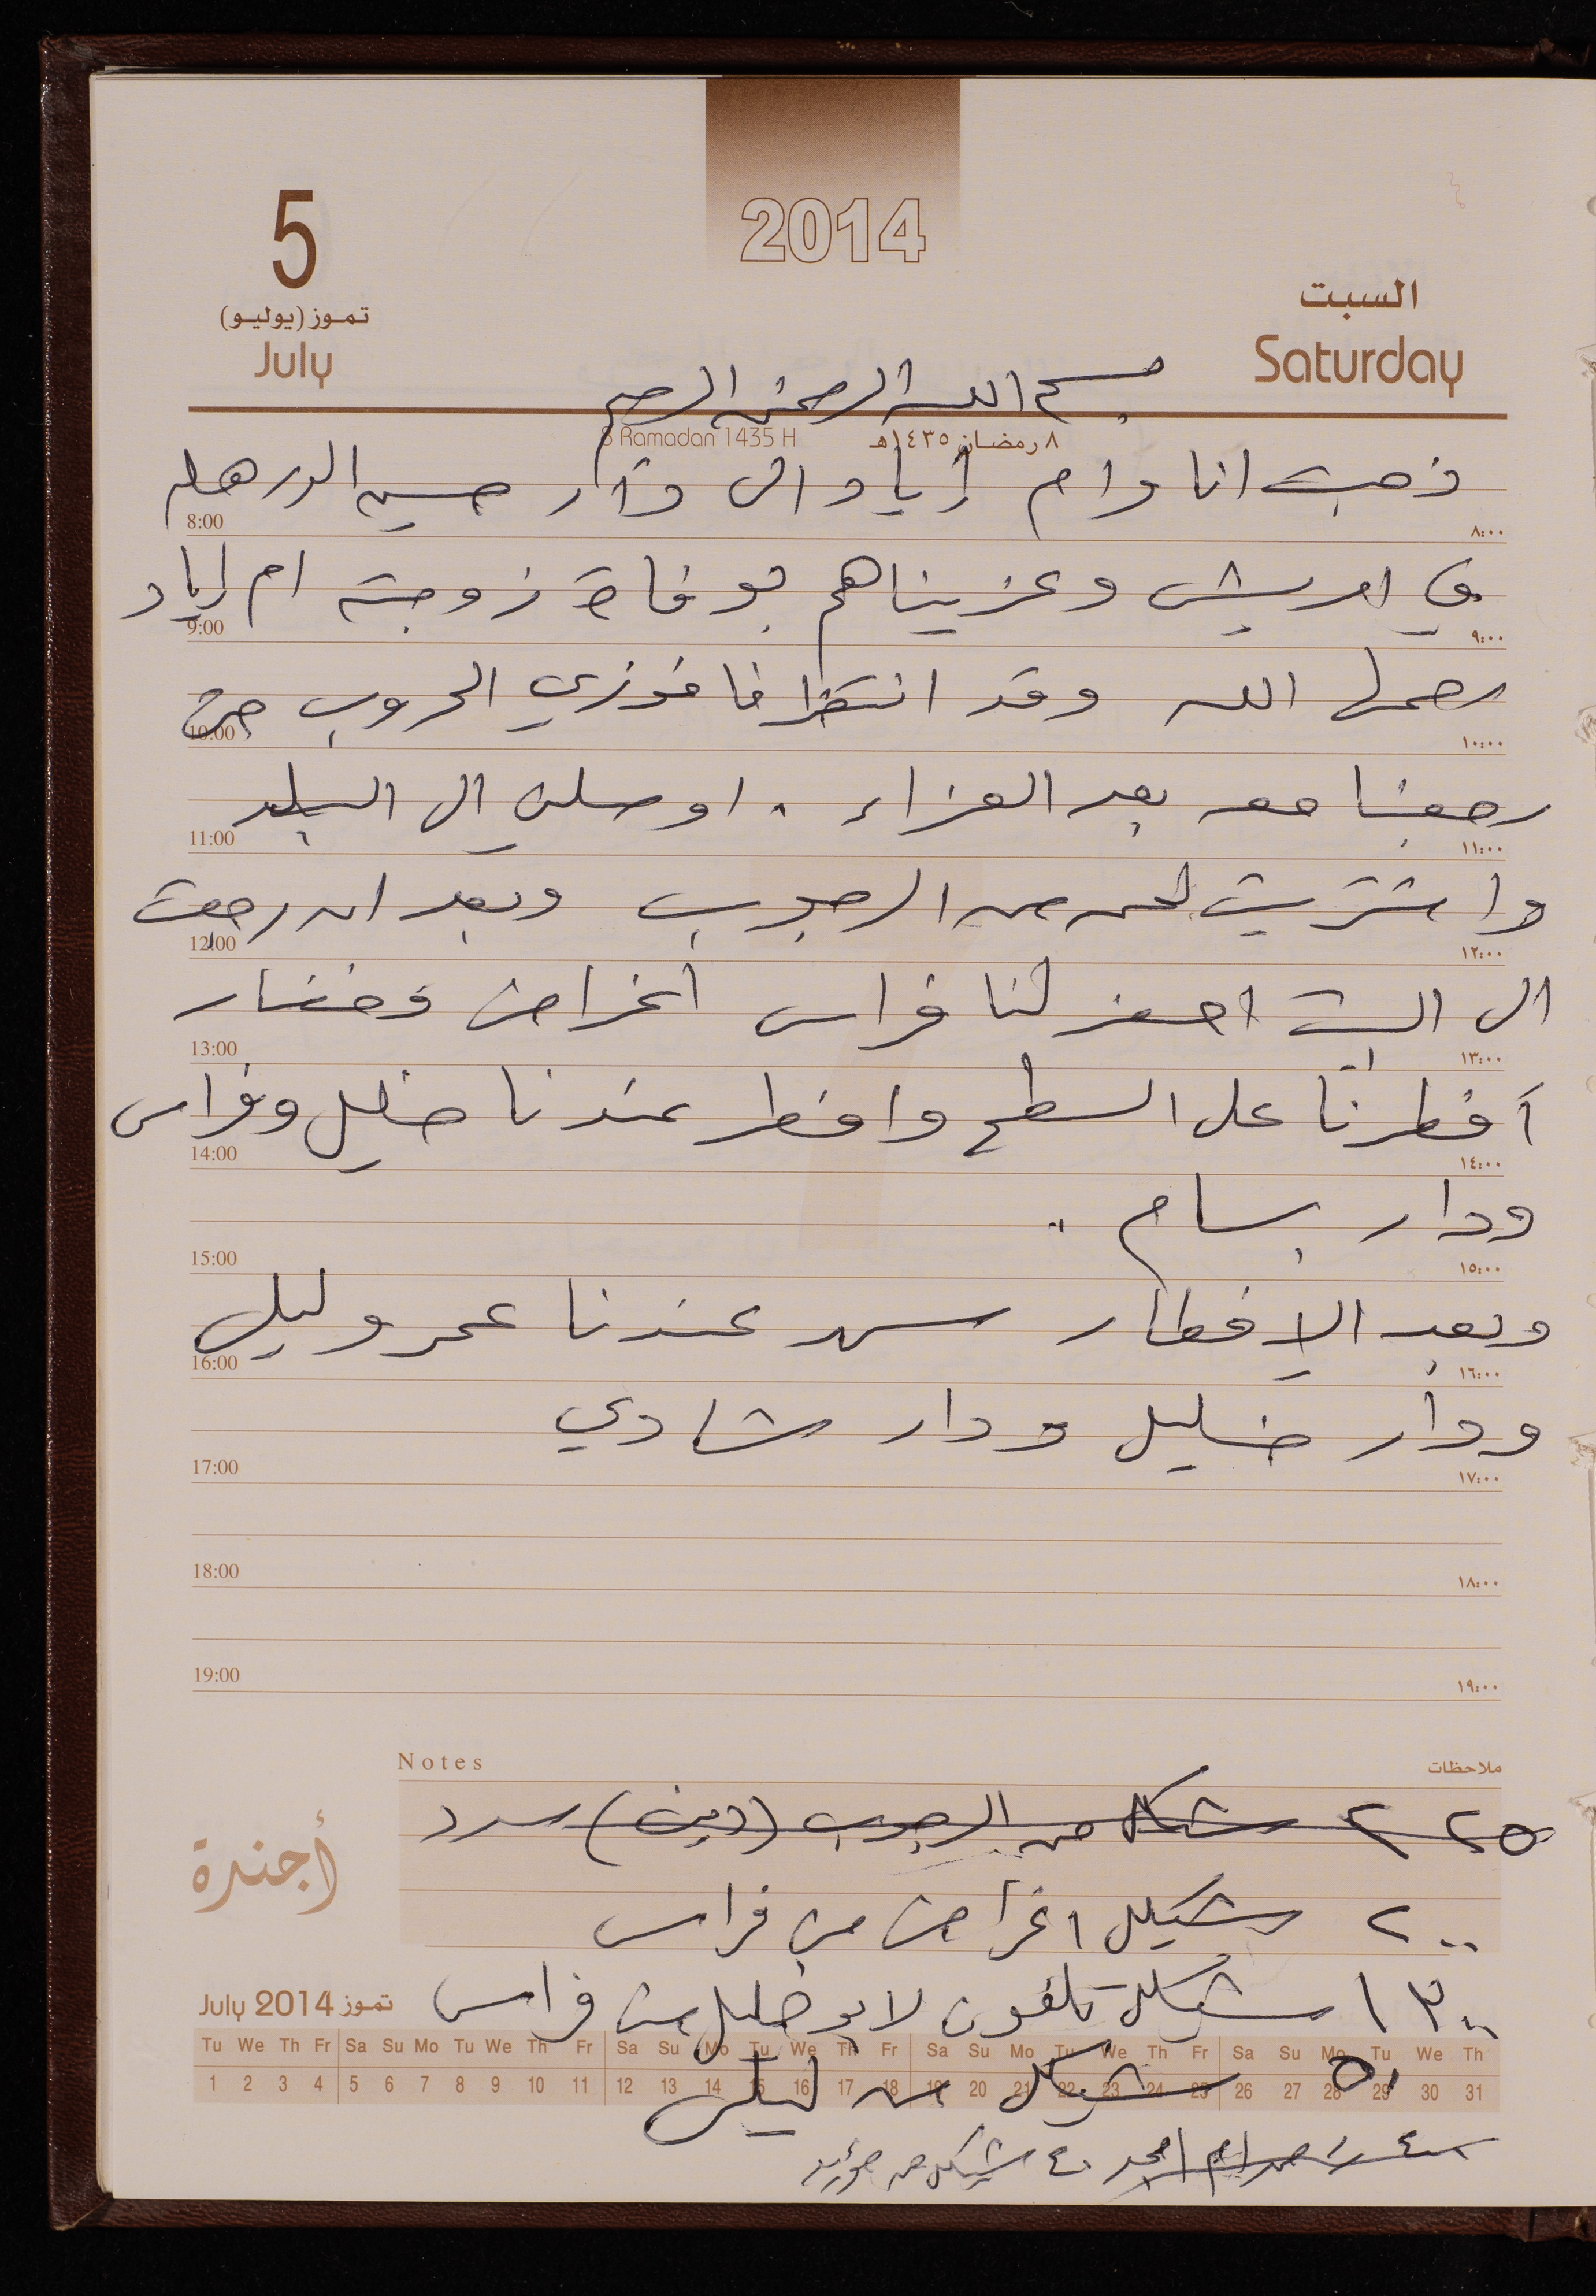 2014
5
تموز (يوليو)
July
السبت
Saturday
بسم الله الرحمن الرحيم
8 Ramadan 1435 H
٨ رمضان ١٤٣٥هـ
ذهبت انا وام إياد الى دار حسين
8:00 ٨:٠٠
في وعزيناهم بوفاة زوجته ام إياد
9:00 ٩:٠٠
رحمها الله وقد انتظرنا فوزي الحروب حتى
10:00 ١٠:٠٠
رجعنا معه بعد العزاء . اوصلني الى البلد
11:00 ١١:٠٠
واشتريت لحمه من الرجوب وبعد ان رجعت
12:00 ١٢:٠٠
الى البيت احضر لنا فراس أغراض وخضار
13:00 ١٣:٠٠
أفطرنا على السطح وافطر عندنا خليل وفراس
14:00 ١٤:٠٠
ودار بسام .
15:00 ١٥:٠٠
وبعد الإفطار سهر عندنا عمر وليلى
16:00 ١٦:٠٠
ودار خليل ودار شادي
17:00 ١٧:٠٠
18:00 ١٨:٠٠
19:00 ١٩:٠٠
Notes
ملاحظات
٢٢٥ شيكل من الرجوب (دين) سدد
أجندة
٢٠٠ شيكل اغراض من فراس
١٣٠٠ شيكل تلفون لابو خليل من فراس
July 2014 تموز
٥٠ شيكل من ليلى
Tu We Th Fr Sa Su Mo Tu We Th Fr Sa Su Mo Tu We Th Fr Sa Su Mo Tu We Th Fr Sa Su Mo Tu We Th
1 2 3 4 5 6 7 8 9 10 11 12 13 14 15 16 17 18 19 20 21 22 23 24 25 26 27 28 29 30 31
ام امجد ٤٠ شيكل من مؤيد